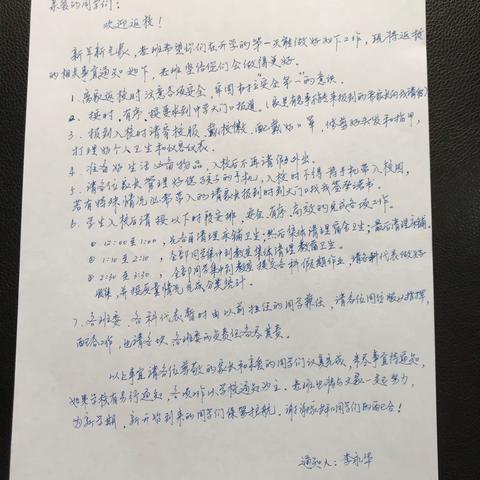 亲爱的同学们：
欢迎返校！
新年新气象，老班希望你们在开学的第一天能做好如下工作，现将返校
的相关事宜通知如下，老班坚信你们会做得更好。
1. 离家返校时注意各项安全，牢固树立"安全第一"的意识。
2. 按时、有序、按要求到中学大门口报道。
3. 报到入校时请穿校服、戴校徽、配戴好口罩，修剪好头发和指甲，
打理好个人卫生和仪容仪表。
4. 准备好生活必需物品，入校后不再请假外出。
5. 请各位家长管理好您孩子的手机，入校时不得将手机带入校园，
若有特殊情况必带入的请家长报到时到大门口找我签承诺书。
6. 学生入校后请按以下时段安排，安全、有序、高效的完成各项工作。
① 12:00至1:00，先各自清理床铺卫生；然后集体清理宿舍卫生；最后清理床铺。
② 1:10至2:10，全部同学集中到教室集体清理教室卫生。
③ 2:30至3:30，全部同学集中到教室提交各科假期作业，请各科代表做好
收集，并按质量情况完成分类统计。
7. 各班委、各科代表暂时由以前担任的同学兼任，请各位同学服从指挥，
配合工作，也请各块各班委的负责任各尽其责。
以上事宜请各位尊敬的家长和亲爱的同学们认真完成，未尽事宜待通知，
如果学校有另行通知，各项工作以学校通知为主。老班也将与大家一起努力，
为新学期、新开始到来的同学们保驾护航。谢谢家长和同学们的配合！
通知人：李永华